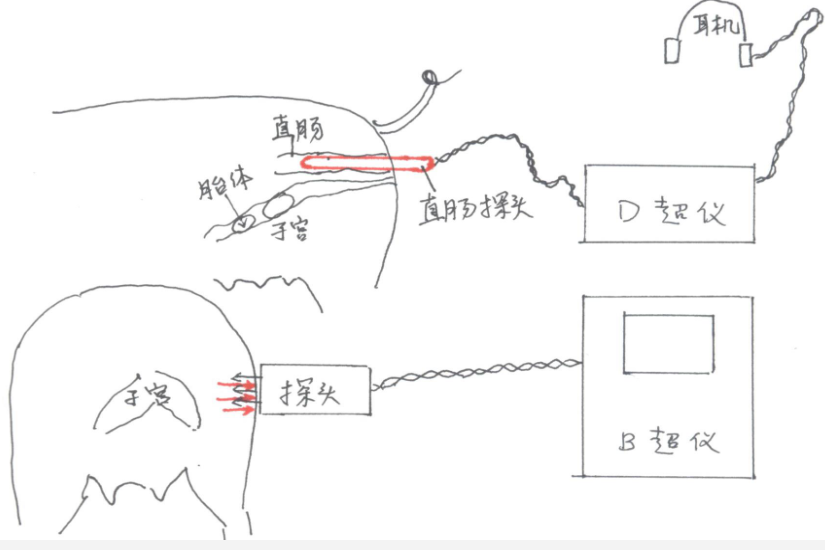 耳机
直肠
胎体
子宫
直肠探头
D超仪
子宫
探头
B超仪